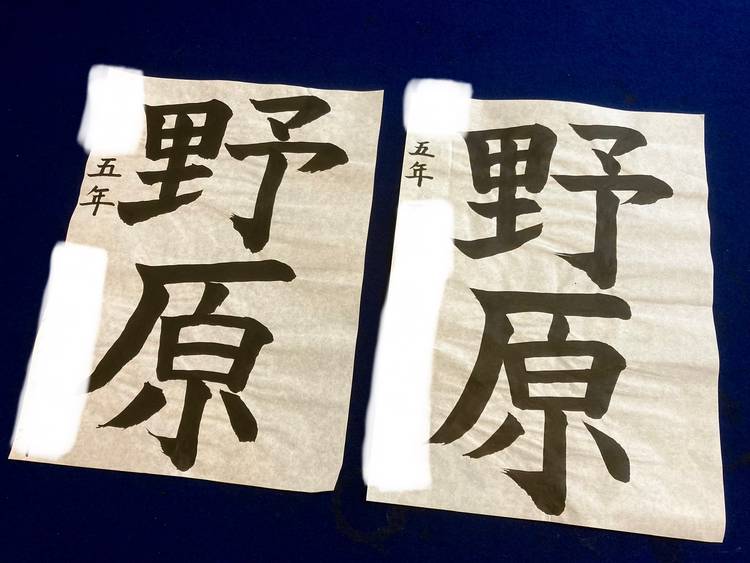 野原
五年
野原
五年